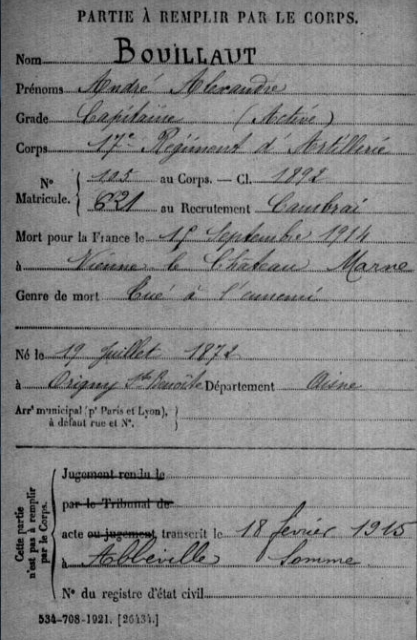 PARTIE À REMPLIR PAR LE CORPS.
Nom BOUILLAUT
Prénoms André Alexandre
Grade Capitaine (Active)
Corps 17e Régiment d'Artillerie
N° Matricule. { 105 au Corps. — Cl. 1892
621 au Recrutement Cambrai
Mort pour la France le 15 Septembre 1914
à Vienne le Château Marne
Genre de mort Tué à l'ennemi
Né le 19 Juillet 1872
à Origny Ste Benoîte Département Aisne
Arrt municipal (pr Paris et Lyon), à défaut rue et N°. }
Cette partie n'est pas à remplir par le Corps.
Jugement rendu le
par le Tribunal de
acte ou jugement transcrit le 18 février 1915
à Abbéville Somme
N° du registre d'état civil
534-708-1921. [26434.]